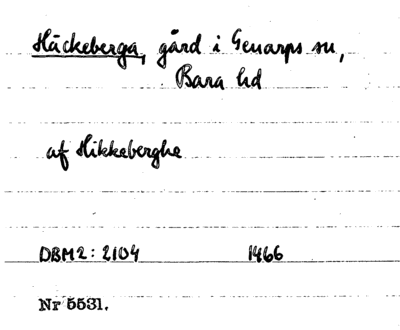 Häckeberga, gård i Genarps sn,
Bara hd
af Hikkeberghe
DBM2: 2104 1466
Nr 5531.